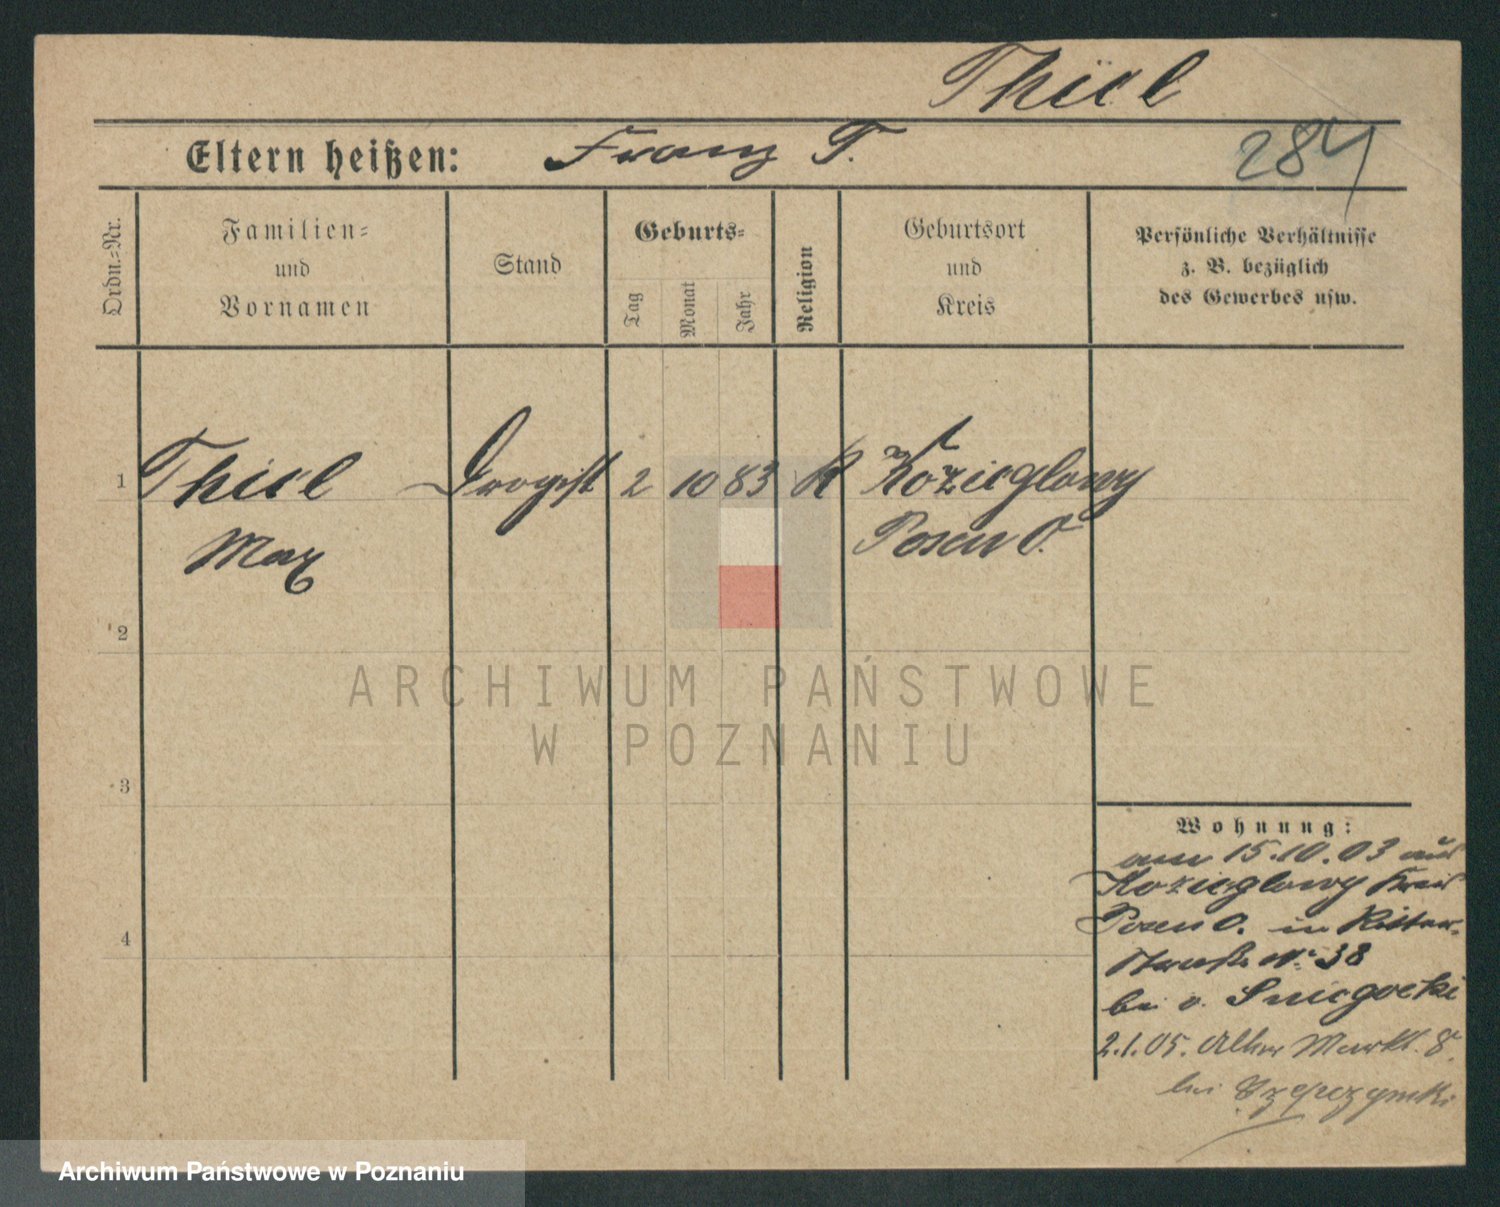 Thiel
Eltern heißen: Franz T.
284
Ordn.-Nr.
Familien-
und
Vornamen
Stand
Geburts-
Tag
Monat
Jahr
Religion
Geburtsort
und
Kreis
Persönliche Verhältnisse
z. B. bezüglich
des Gewerbes usw.
1 Thiel Drogist 2 10 83 K Kozieglowy
Max Posen O.
2
3
4
Wohnung:
am 15.10.03 aus
Kozieglowy Kreis
Posen O. in Ritter-
straße No 38
bei v. Sniegocki
2.1.05. Alter Markt 8.
bei
ARCHIWUM PAŃSTWOWE
W POZNANIU
Archiwum Państwowe w Poznaniu